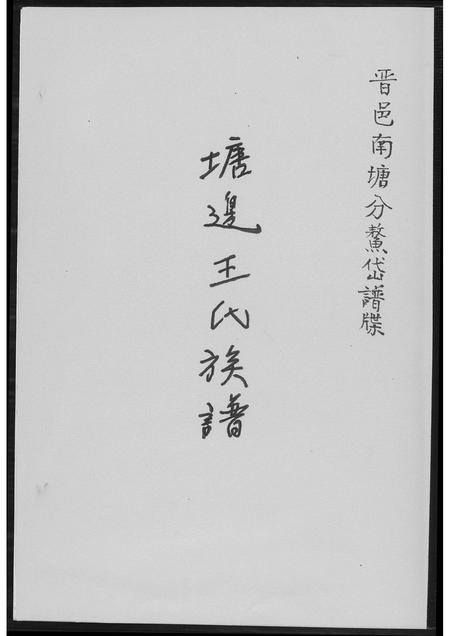 晋邑南塘分鰲岱譜牒
塘邊王氏族譜